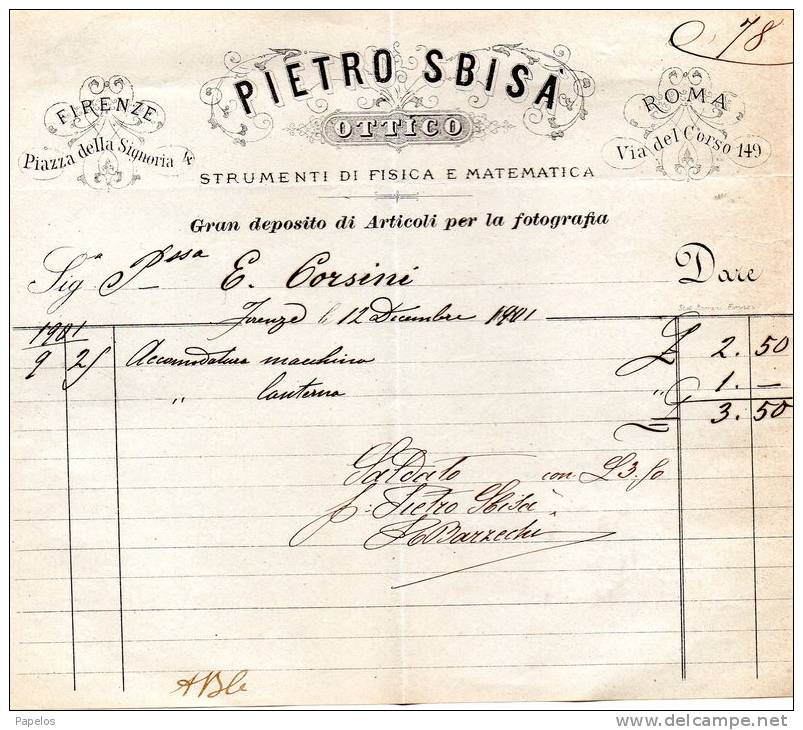 78
PIETRO SBISÀ
OTTICO
FIRENZE
Piazza della Signoria 4
ROMA
Via del Corso 149
STRUMENTI DI FISICA E MATEMATICA
Gran deposito di Articoli per la fotografia
Sig.a P.ssa E. Corsini Dare
Firenze li 12 Decembre 1901
1901
9 25 Accomodatura macchina £ 2.50
" lanterna " 1. —
£ 3.50
Saldato con £ 3,50
p. Pietro Sbisà
Barzechi
Papelos
www.delcampe.net